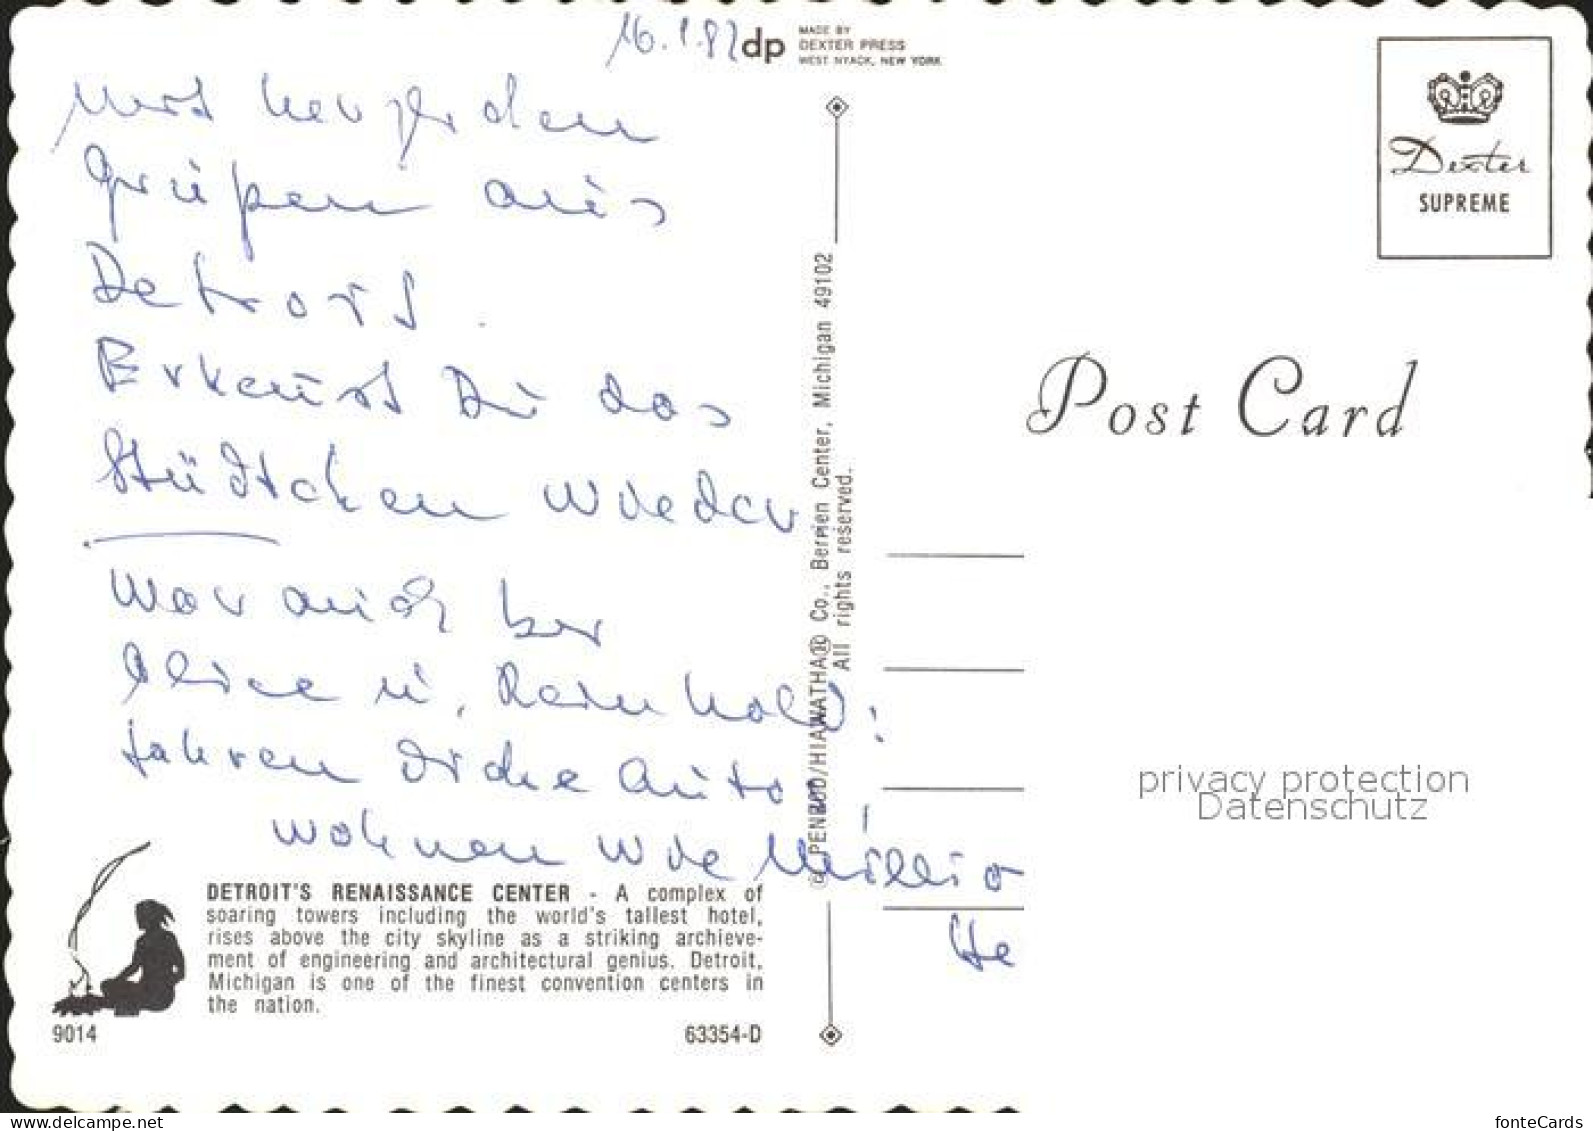 16.1.82
dp
MADE BY
DEXTER PRESS
WEST NYACK, NEW YORK
Mit herzlichen
Grüßen aus
Detroit.
Erkennst Du das
Städtchen wieder
War auch bei
Alice u. Reinhold:
fahren dicke Auto
wohnen wie Millio
He
DETROIT'S RENAISSANCE CENTER - A complex of
soaring towers including the world's tallest hotel,
rises above the city skyline as a striking archieve-
ment of engineering and architectural genius. Detroit,
Michigan is one of the finest convention centers in
the nation.
9014
63354-D
© PENROD/HIAWATHA® Co., Berrien Center, Michigan 49102
All rights reserved.
Dexter
SUPREME
Post Card
privacy protection
Datenschutz
www.delcampe.net
fonteCards